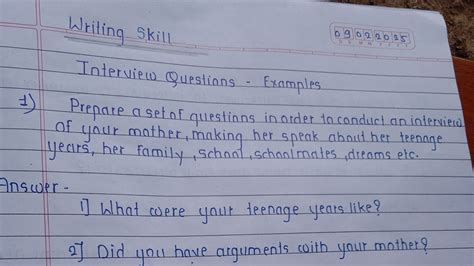 Writing Skill
09022025
D D M M Y Y Y Y
Interview Questions - Examples
1) Prepare a set of questions in order to conduct an interview
of your mother, making her speak about her teenage
years, her family, school, schoolmates, dreams etc.
Answer -
1] What were your teenage years like?
2] Did you have arguments with your mother?